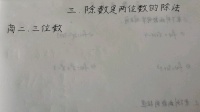 三、除数是两位数的除法
商二、三位数